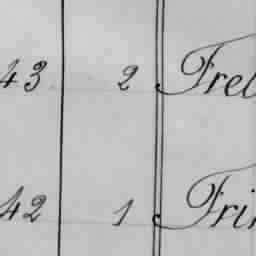 43 2 Frel
42 1 Frin